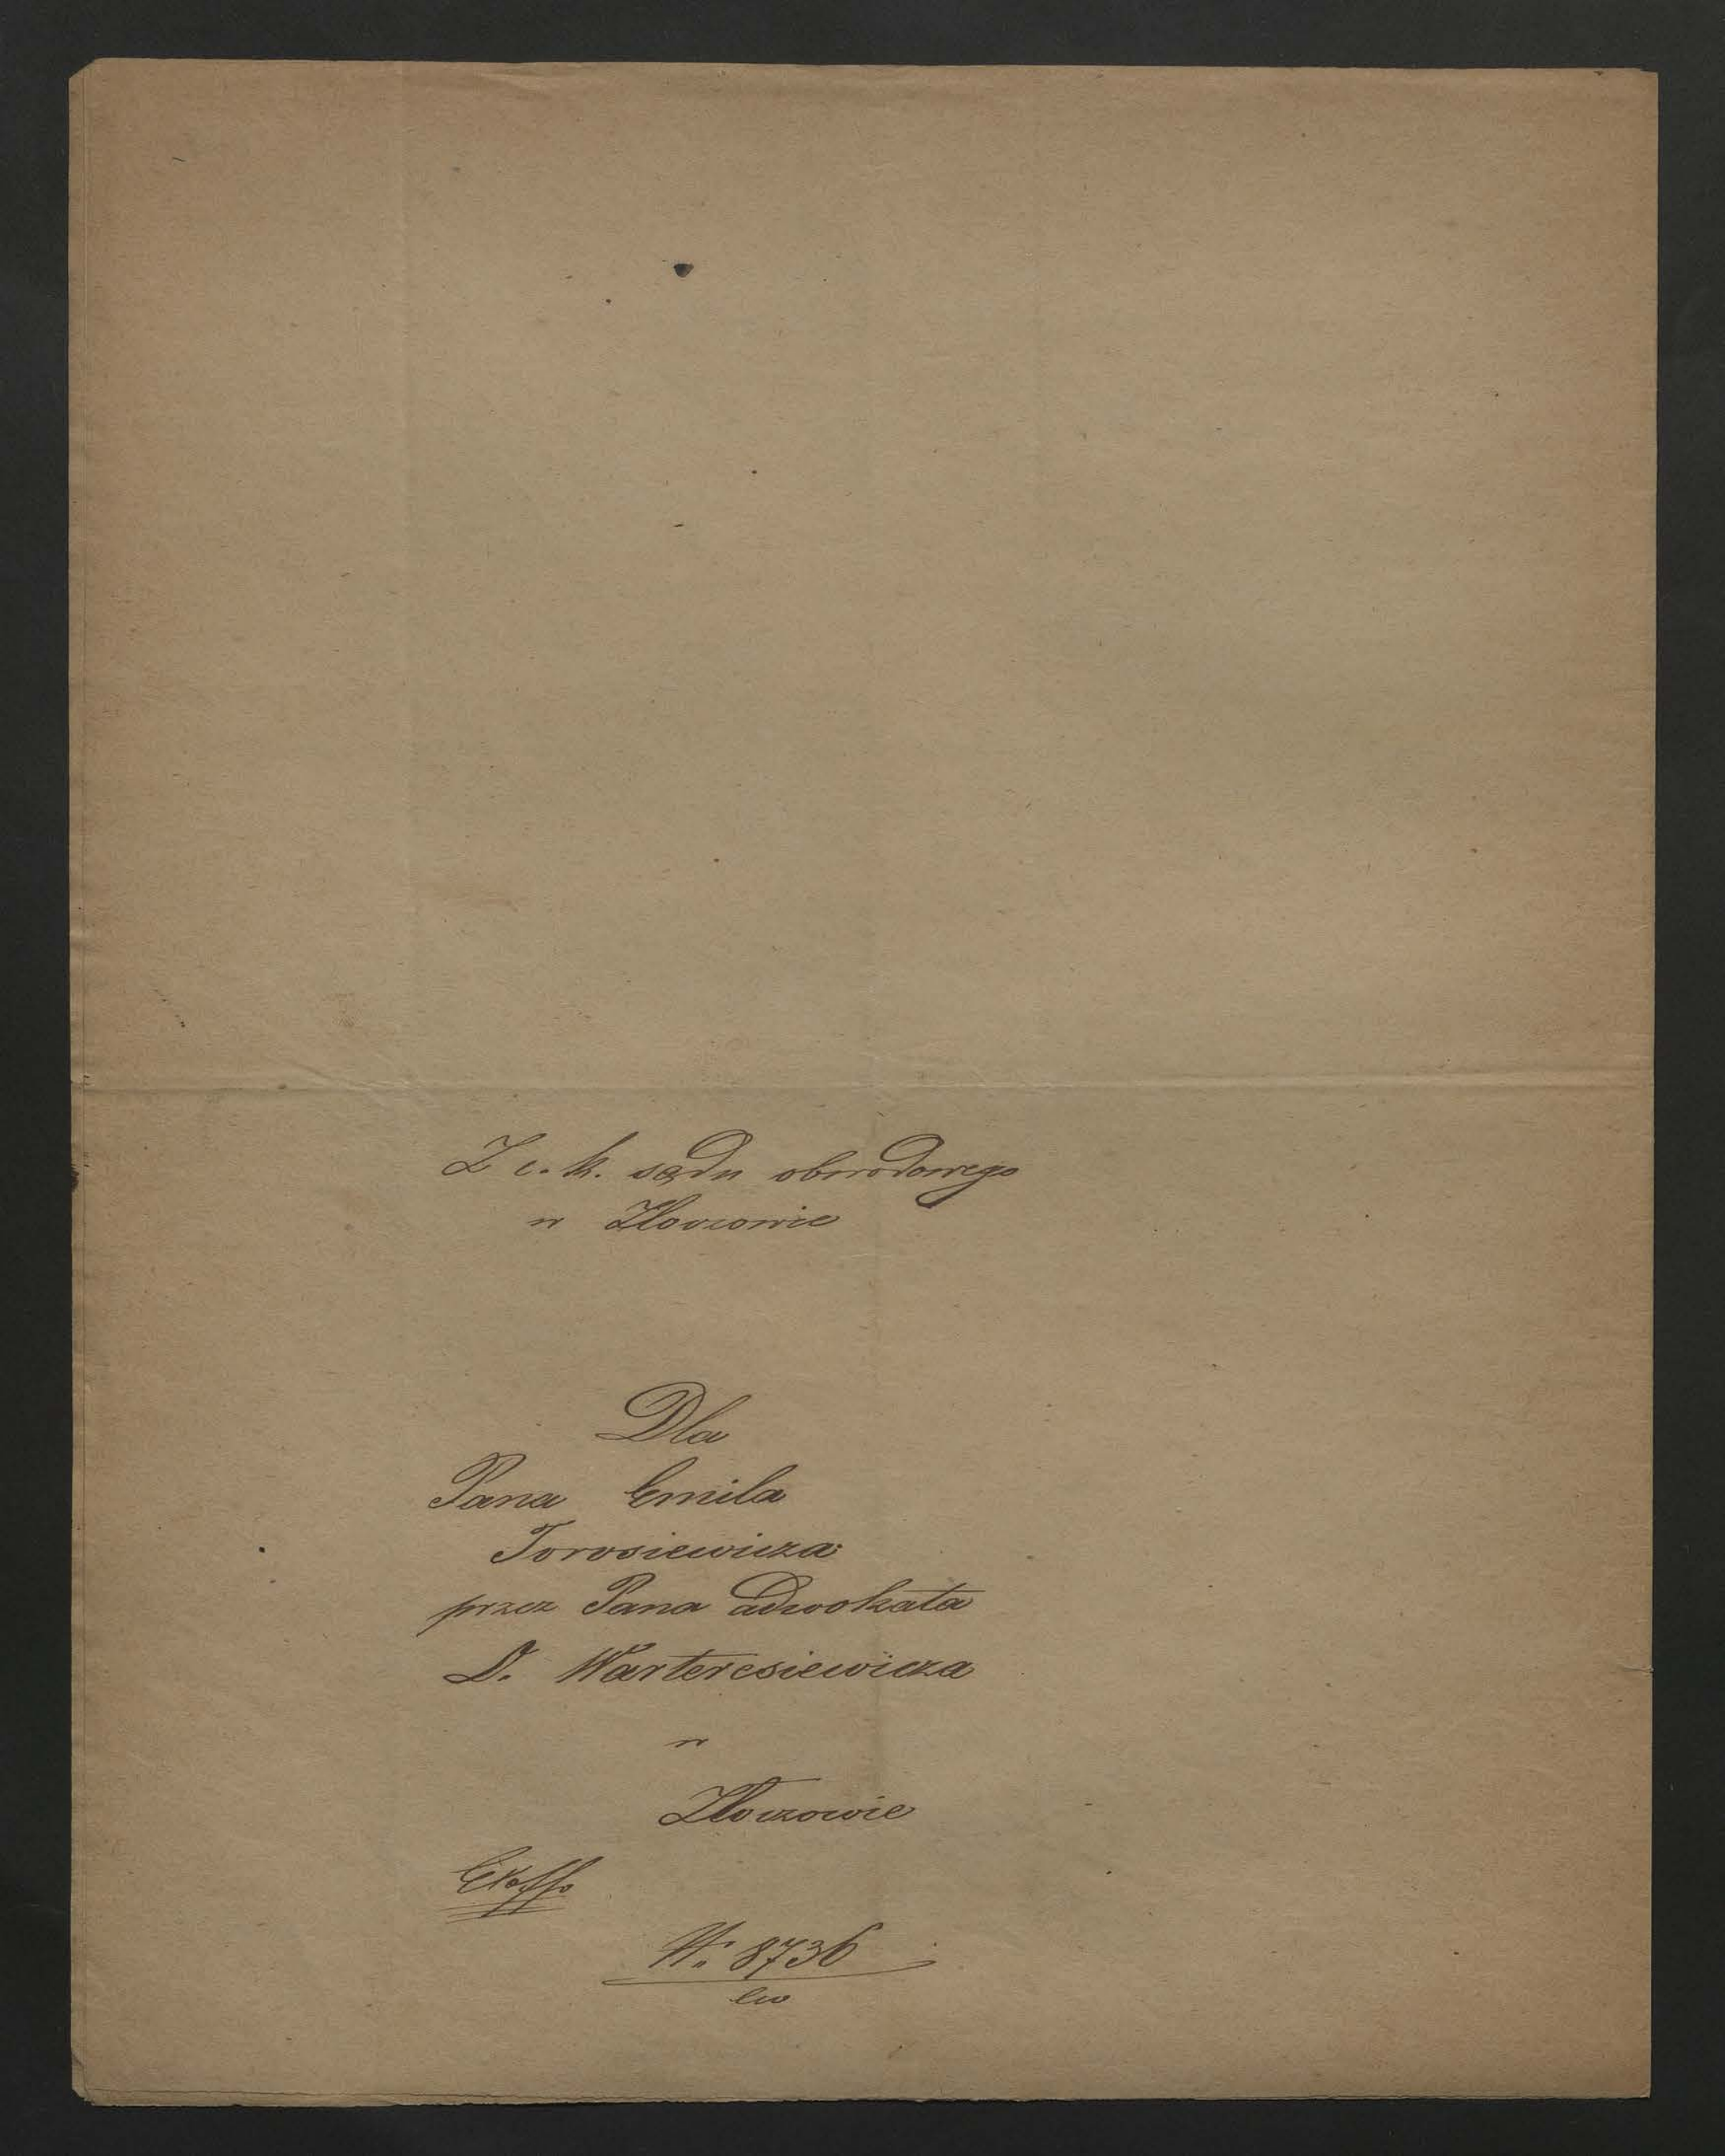 Z c. k. sądu obwodowego
w Złoczowie
Dla
Pana Emila
Torosiewicza
przez Pana adwokata
D. Warteresiewicza
w
Złoczowie
N. 8736